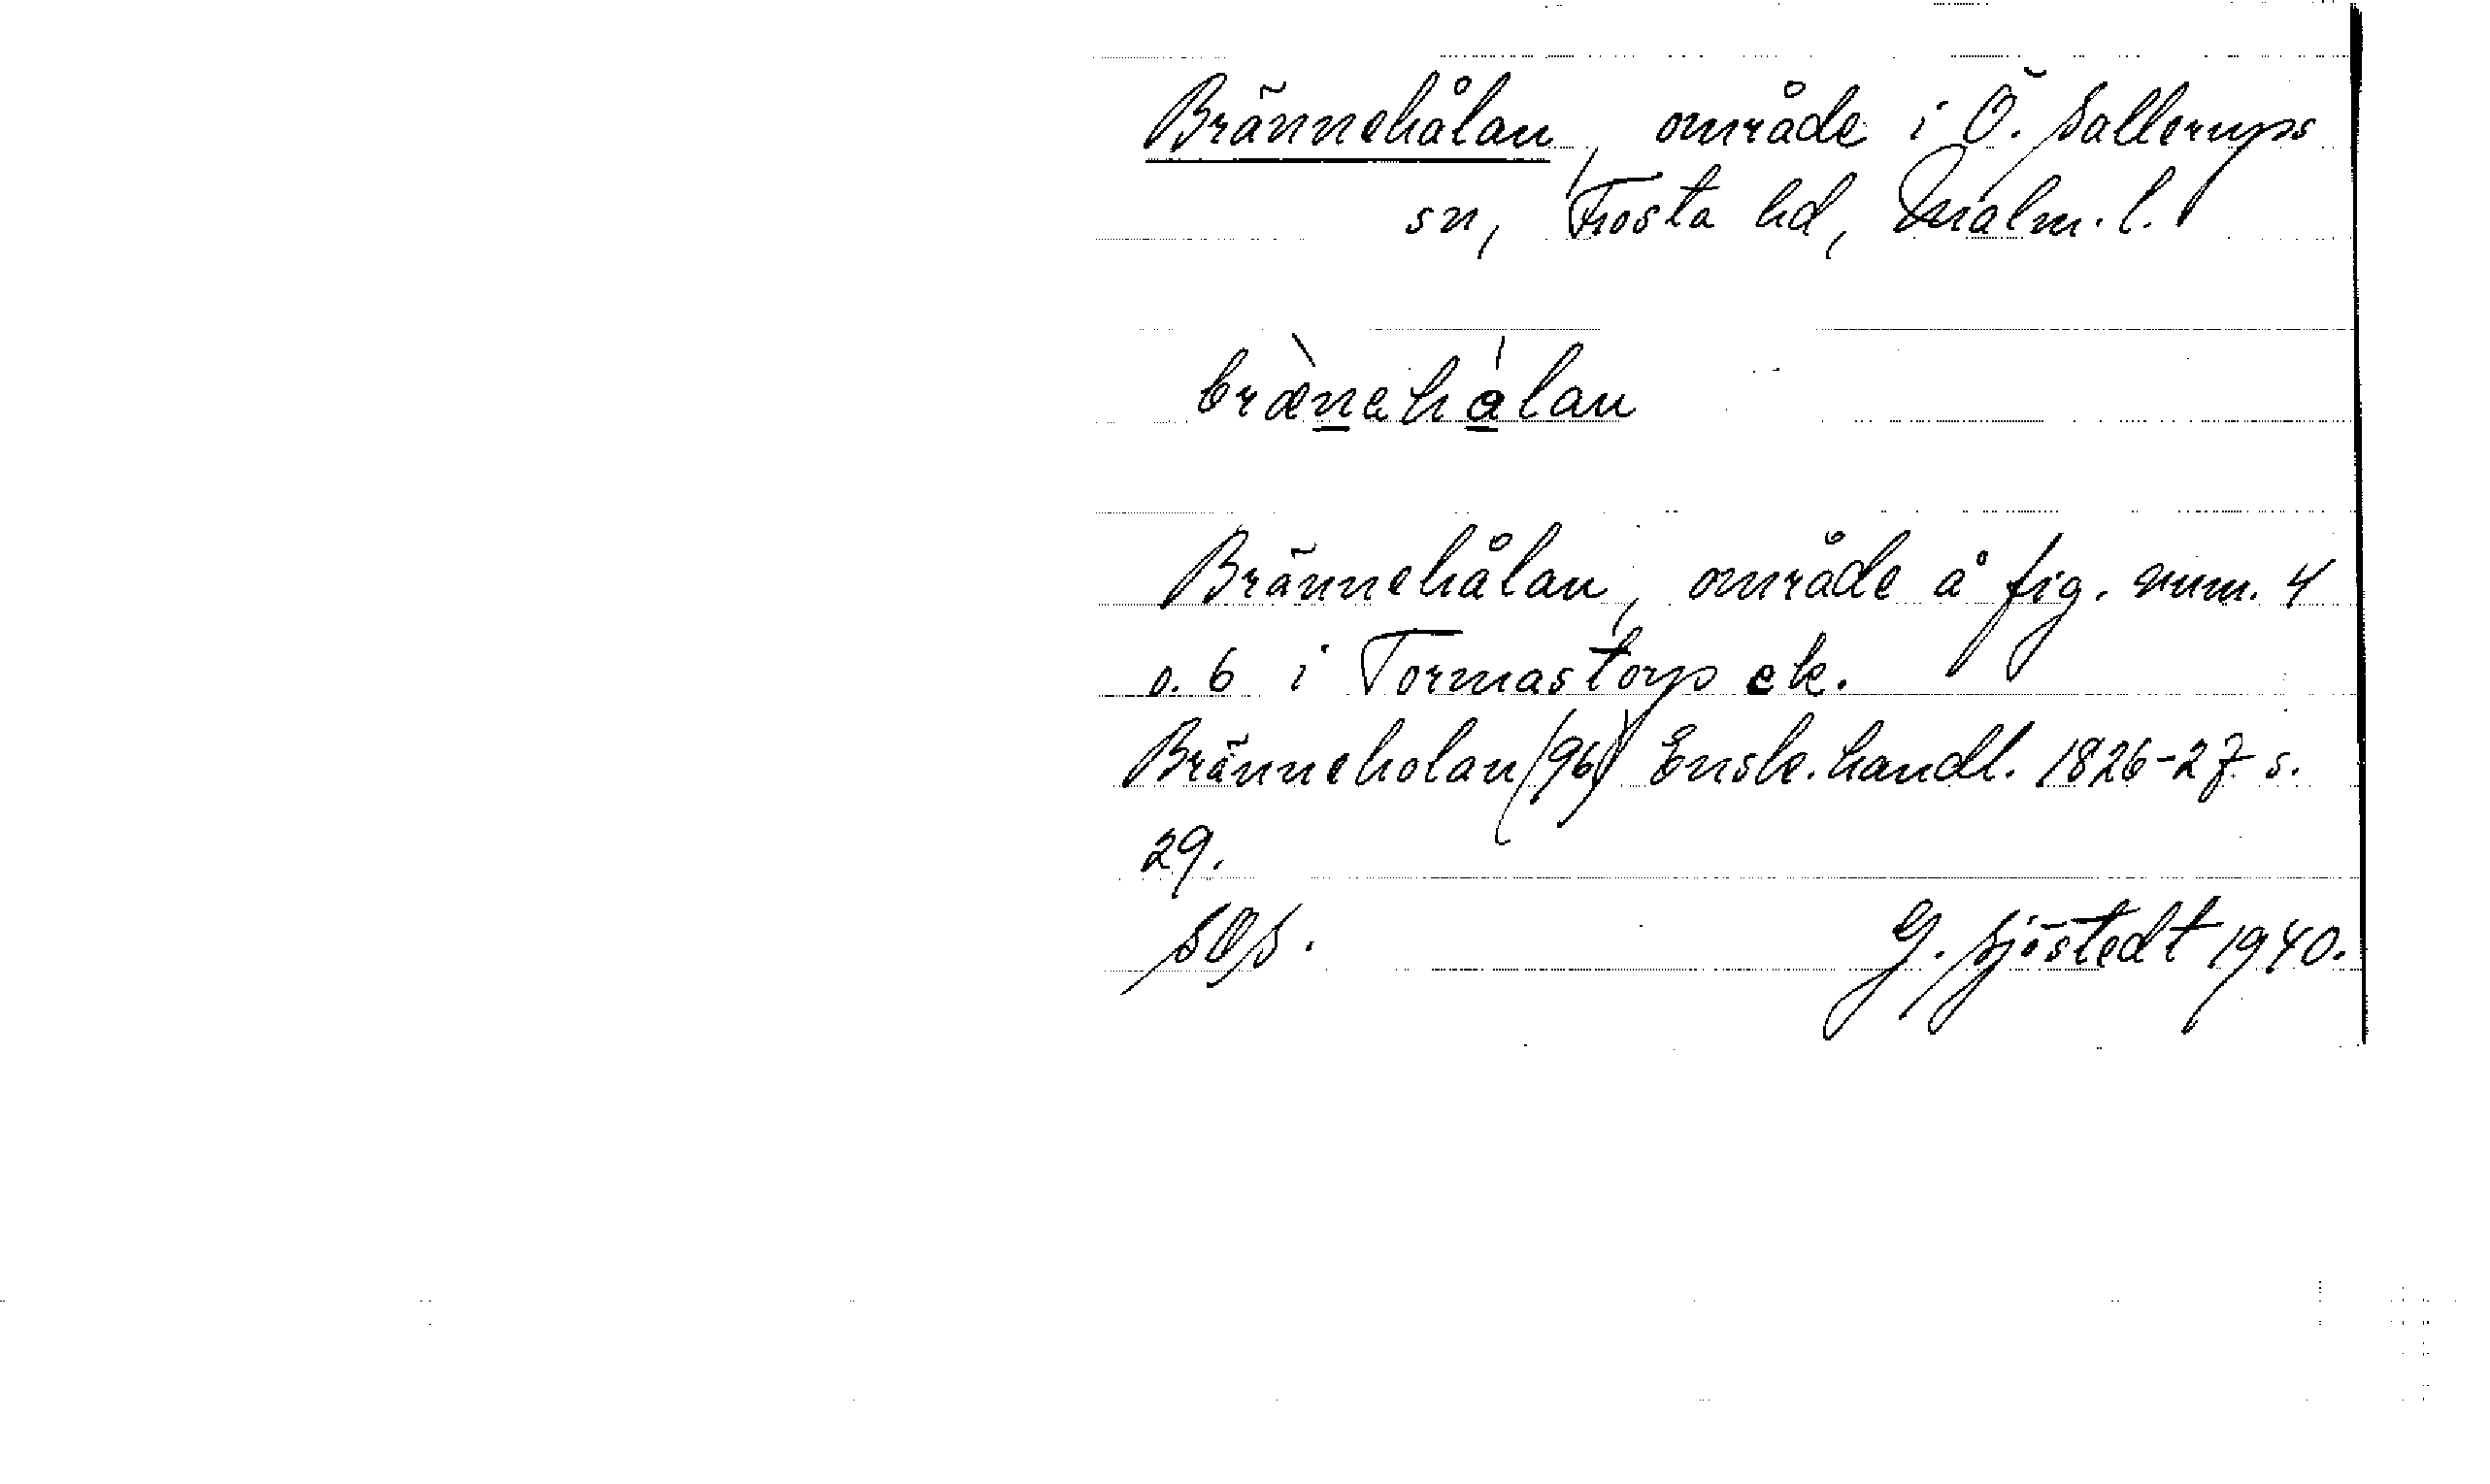 Brännehålan, område i Ö. Sallerups
sn, Frosta hd, Malm. l.
brænehålan
Brännehålan, område å fig. num. 4
o. 6 i Tormastorp ek.
Bränneholan (96) Ensk. handl. 1826-27 s.
29.
SOS.
G. Sjöstedt 1940.